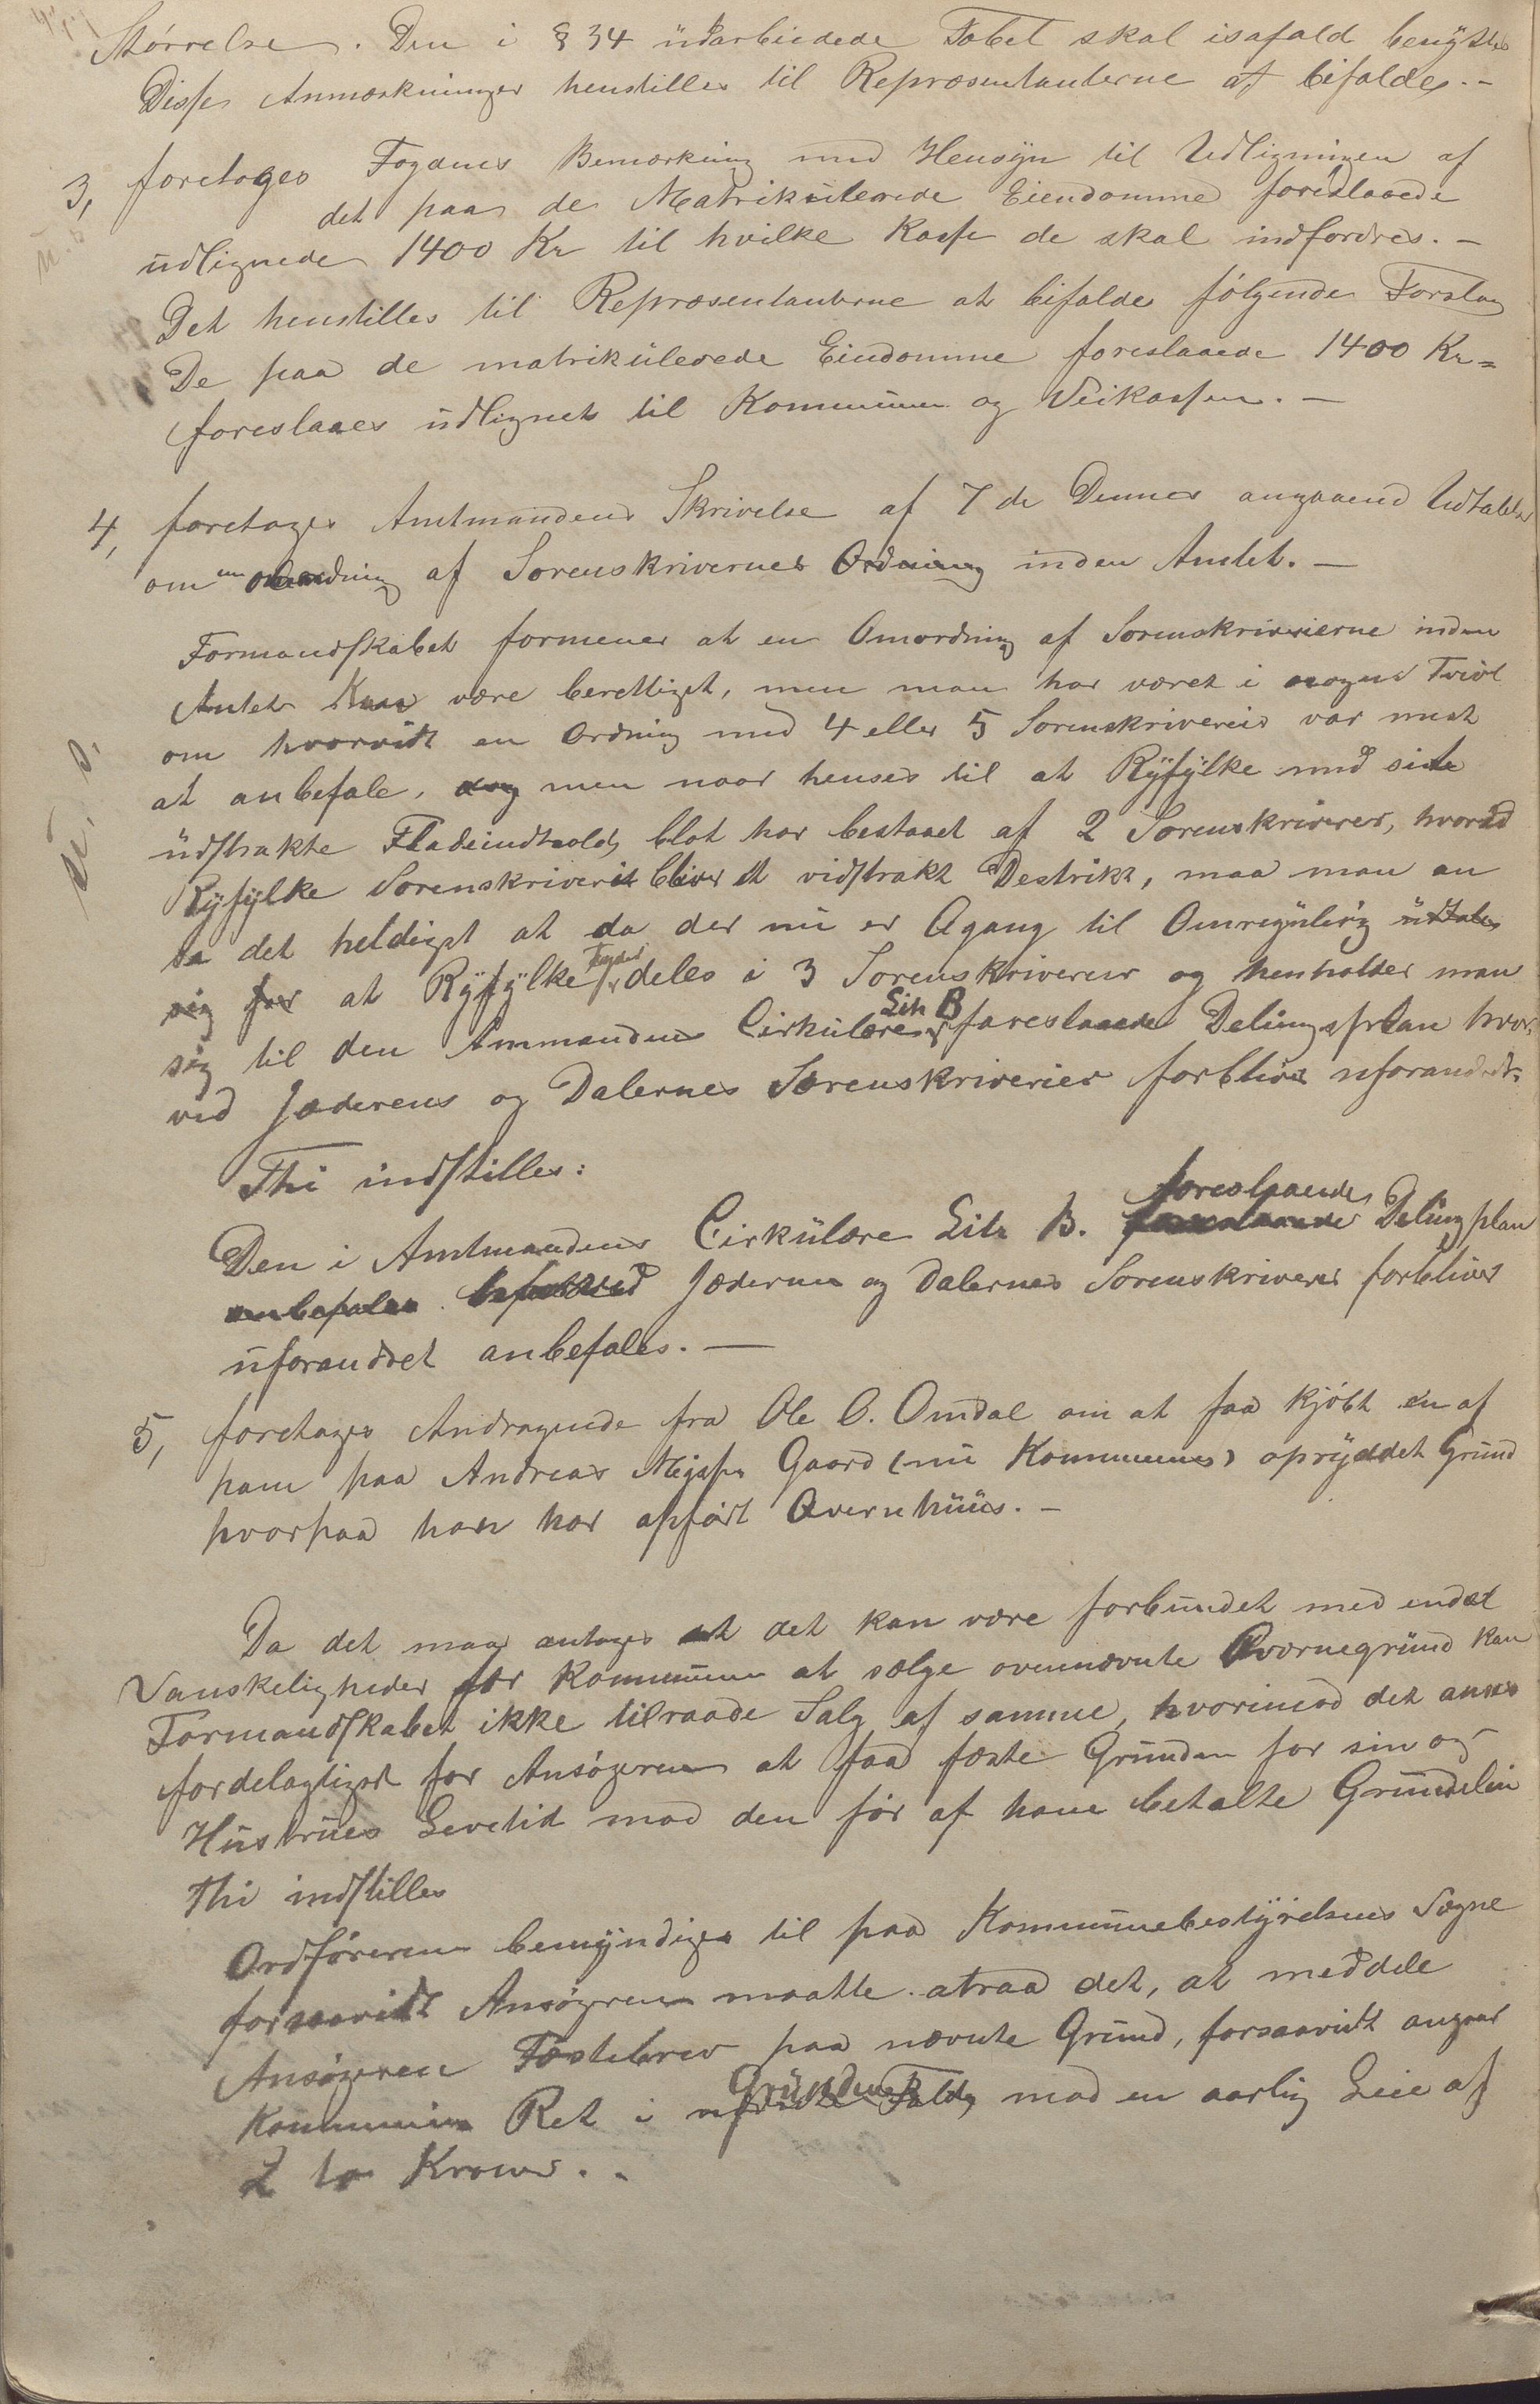 Størrelse. Den i § 34 udarbeidede Tabel skal isafald benyttes
Disse Anmærkninger henstilles til Repræsentanterne at bifaldes. -
3, foretoges Fogdens Bemærkning med Hensyn til Udligningen af
det paa de Matrikulerede Eiendomme foreslaaede
udlignede 1400 Kr til hvilke Kasse de skal indfordres. -
Det henstilles til Repræsentanterne at bifalde følgende Forslag
De paa de matrikulerede Eiendomme foreslaaede 1400 Kr =
foreslaaes udlignet til Kommunen og Veikassen. -
4, foretoges Amtmandens Skrivelse af 7de Dennes angaaende Udtalelse
om omordning af Sorenskrivernes Ordning inden Amtet. -
Formandskabet formener at en Omordning af Sorenskriverierne inden
Amtet Kan være berettiget, men man har været i nogen Tvivl
om hvorvidt en Ordning med 4 eller 5 Sorenskriverier var mest
at anbefale, dog men naar henses til at Ryfylke med sit
udstrakte Fladeindhold, blot har bestaaet af 2 Sorenskriverier, hvorved
Ryfylke Sorenskriveri bliver et vidstrakt Destrikt, maa man an
sa det heldigst at da der nu er Agang til Omregulering udtale
sig for at Ryfylke Fogderi deles i 3 Sorenskriverier og henholder man
sig til den Ammandens Cirkulære Litr B foreslaaede Delingsplan hvor-
ved Jæderens og Dalernes Sorenskriverier forbliver uforandret.
Thi indstilles:
Den i Amtmandens Cirkulære Litr B. foreslaaede Delingplan
anbefales hvorved Jæderens og Dalernes Sorenskriveri forbliver
uforandret anbefales. -
5, foretoges Andragende fra Ole O. Omdal om at faa kjøbt en af
ham paa Andreas Gaard (nu Kommunens) opryddet Grund
hvorpaa han har opført Qvernhuus. -
Da det maa antages at det kan være forbundet med endel
Vanskeligheder for Kommunen at sælge ovennævnte Qvernegrund kan
Formandskabet ikke tilraade Salg af samme, hvorimod det anses
fordelagtigst for Ansøgeren at faa fæste Grunden for sin og
Hustrues Levetid mod den før af ham betalte Grundleie
Thi indstilles
Ordføreren bemyndiges til paa Kommunebestyrelsens Vegne
forsaavidt Ansøgeren maatte atraa det, at meddele
Ansøgeren Fæstebrev paa nævnte Grund, forsaavidt angaar
Kommunens Ret i Grunden mod en aarlig Leie af
2 to Kroner. .